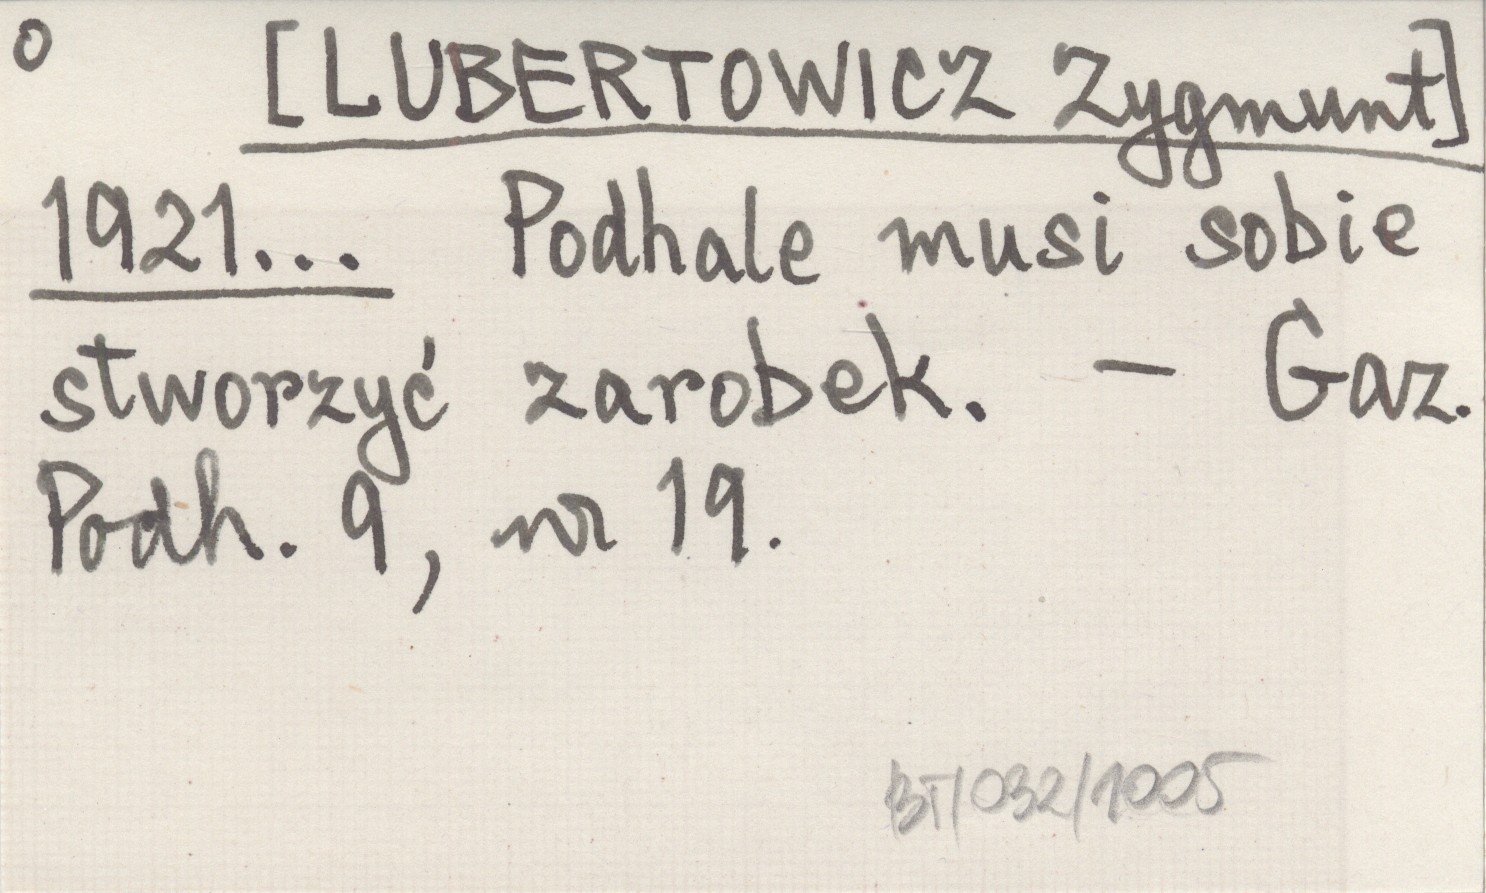 o [LUBERTOWICZ Zygmunt]
1921... Podhale musi sobie
stworzyć zarobek. – Gaz.
Podh. 9, nr 19.
BT/032/1005